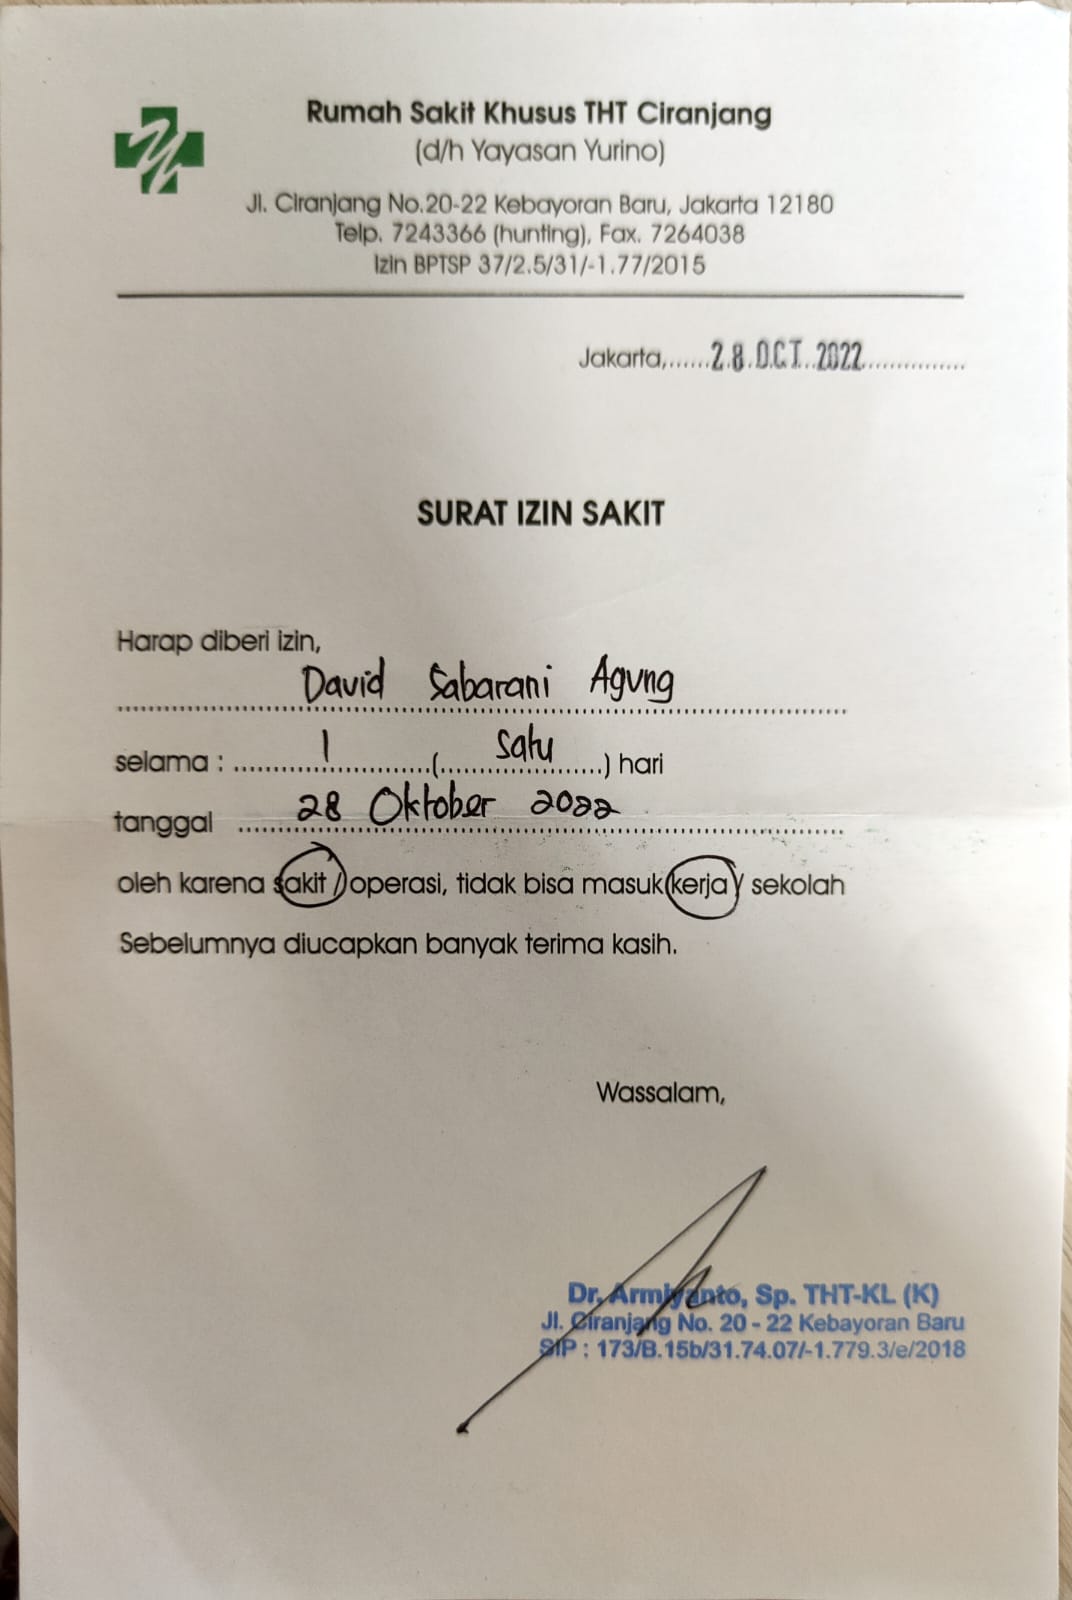 Rumah Sakit Khusus THT Ciranjang
(d/h Yayasan Yurino)
Jl. Ciranjang No.20-22 Kebayoran Baru, Jakarta 12180
Telp. 7243366 (hunting), Fax. 7264038
Izin BPTSP 37/2.5/31/-1.77/2015
Jakarta,......28 OCT 2022..............
SURAT IZIN SAKIT
Harap diberi izin,
David Sabarani Agung
selama : 1 (satu) hari
tanggal 28 Oktober 2022
oleh karena sakit / operasi, tidak bisa masuk kerja / sekolah
Sebelumnya diucapkan banyak terima kasih.
Wassalam,
Dr. Armiyanto, Sp. THT-KL (K)
Jl. Ciranjang No. 20 - 22 Kebayoran Baru
SIP : 173/B.15b/31.74.07/-1.779.3/e/2018